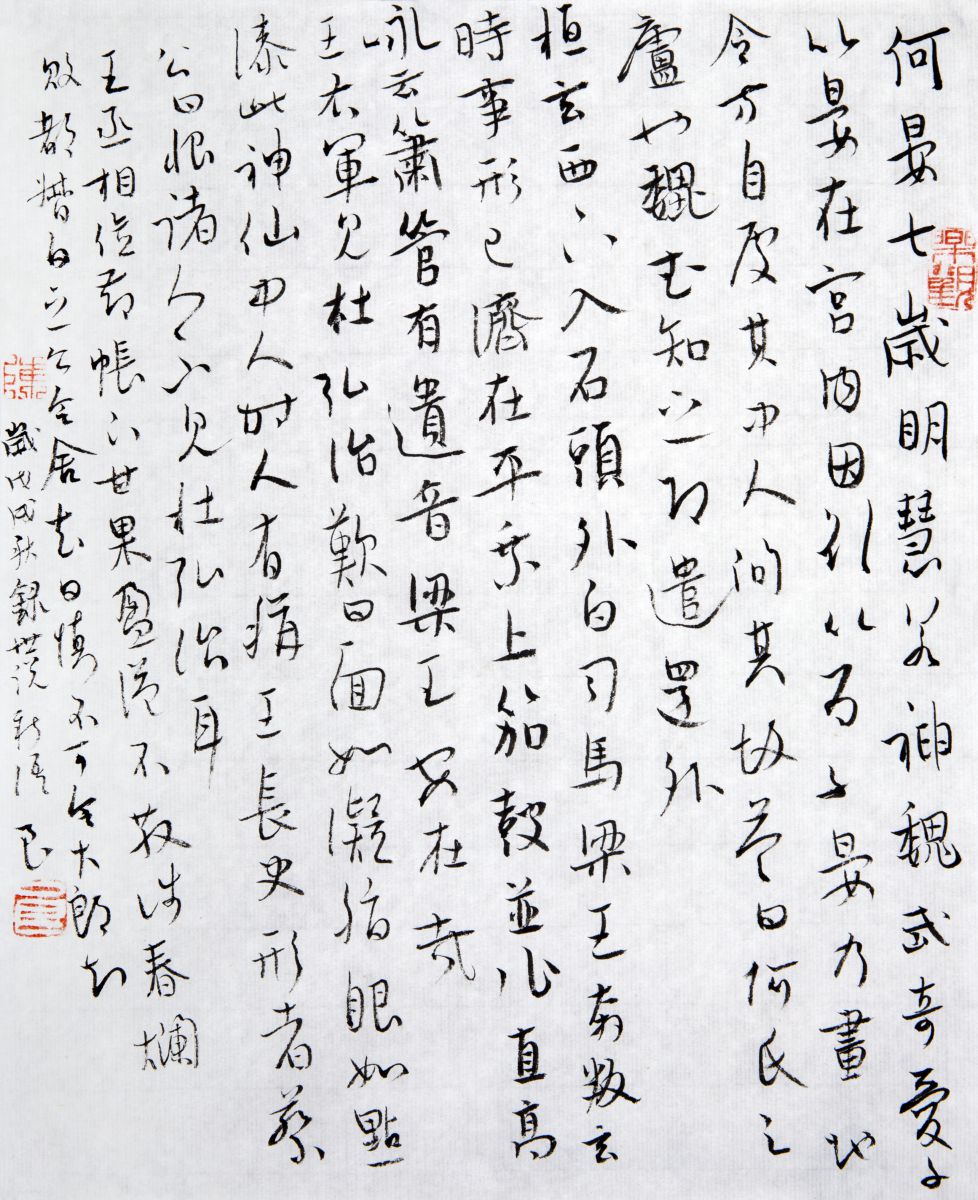 何晏七歲明慧若神魏武奇愛之
以晏在宮內因欲以為子晏乃畫地
令方自處其中人問其故答曰何氏之
廬也魏武知之即遣還外
桓玄西下入石頭外白司馬梁王奔叛玄
時事形已濟在平乘上笳鼓並作直高
詠云簫管有遺音梁王安在哉
王右軍見杜弘治歎曰面如凝脂眼如點
漆此神仙中人時人有稱王長史形者蔡
公曰恨諸人不見杜弘治耳
王丞相儉節帳下甘果盈溢不散涉春爛
敗都督白之公令舍去曰慎不可令大郎知
歲戊戌秋錄世說新語 良
樂觀